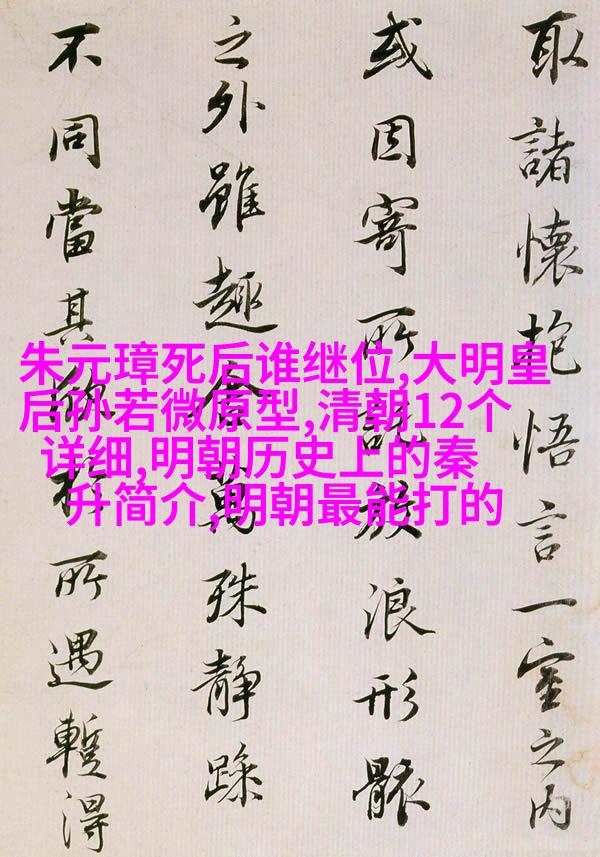 取諸懷抱悟言一室之内
或因寄所託放浪形骸
之外雖趣舍萬殊靜躁
不同當其欣於所遇暫得
朱元璋死后谁继位,大明皇
后孙若微原型,清朝12个
详细,明朝历史上的秦
升简介,明朝最能打的